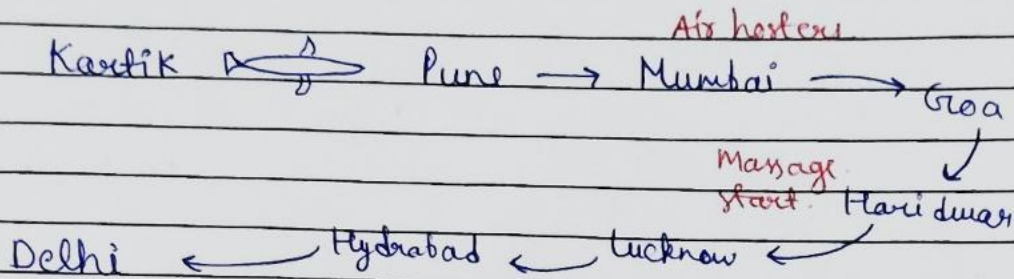 Air hostess
Kartik Pune → Mumbai → Goa
Massage
start. Haridwar
Delhi ← Hydrabad ← Lucknow ←